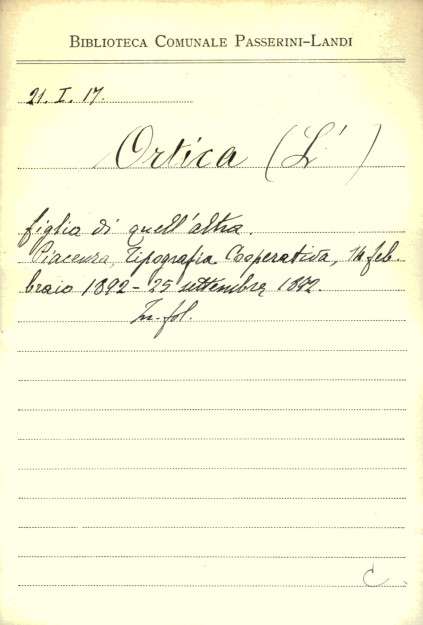 BIBLIOTECA COMUNALE PASSERINI-LANDI
21. I. 17.
Ortica (L')
figlia di quell'altra.
Piacenza, Tipografia Cooperativa, 14 feb.
braio 1892 - 25 settembre 1892.
In-fol.
C.